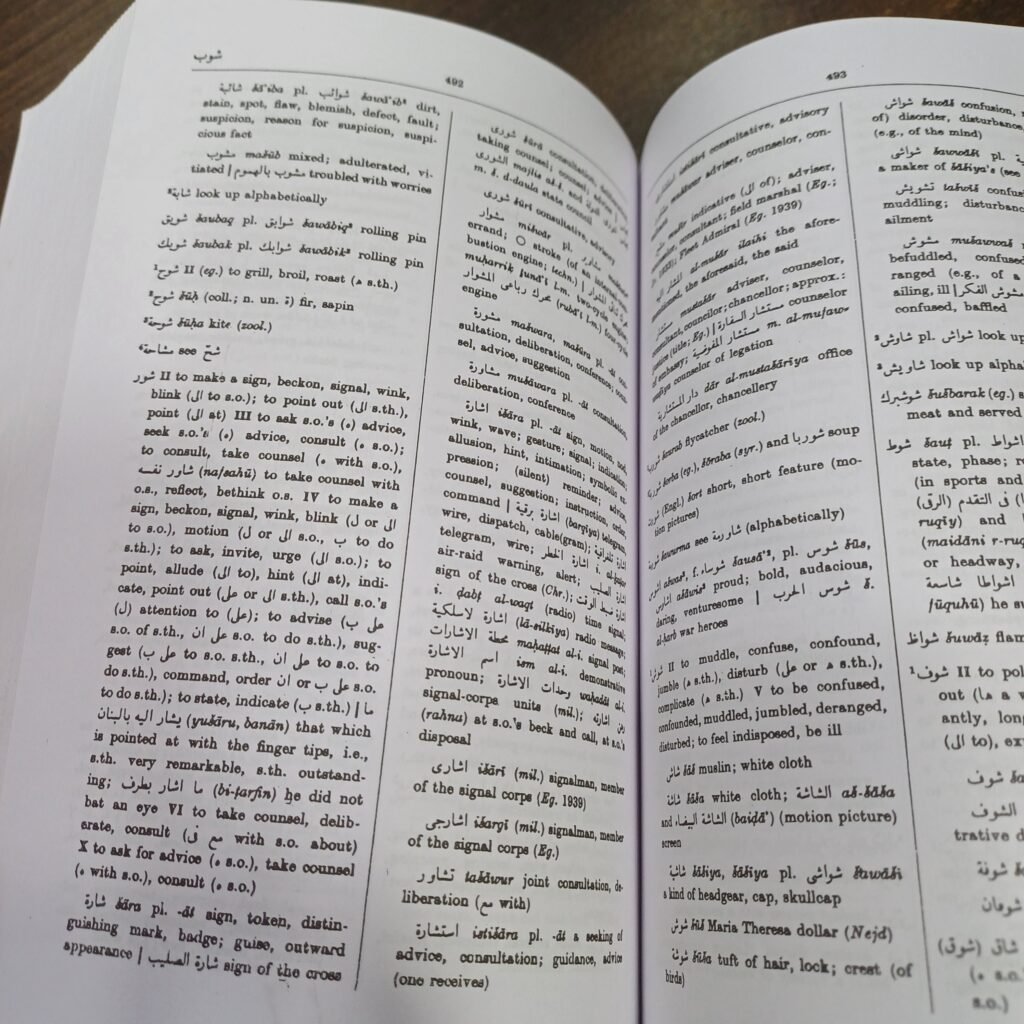 شوب
492
شائبة šā'iba pl. شوائب šawā'ib² dirt,
stain, spot, flaw, blemish, defect, fault;
suspicion, reason for suspicion, suspi-
cious fact
مشوب mašūb mixed; adulterated, vi-
tiated | مشوب بالهموم troubled with worries
شابة³ look up alphabetically
شوبق šaubaq pl. شوابق šawābiq² rolling pin
شوبك šaubak pl. شوابك šawābik² rolling pin
¹شوح II (eg.) to grill, broil, roast (ه s.th.)
²شوح šūḥ (coll.; n. un. ة) fir, sapin
³شوحة šūḥa kite (zool.)
⁴مشاحة see شح
شور II to make a sign, beckon, signal, wink,
blink (الى to s.o.); to point out (الى s.th.),
point (الى at) III to ask s.o.'s (ه) advice,
seek s.o.'s (ه) advice, consult (ه s.o.);
to consult, take counsel (ه with s.o.),
شاور نفسه (nafsahū) to take counsel with
o.s., reflect, bethink o.s. IV to make a
sign, beckon, signal, wink, blink (ل or الى
to s.o.), motion (ل or الى s.o., ب to do
s.th.); to ask, invite, urge (الى s.o.); to
point, allude (الى to), hint (الى at), indi-
cate, point out (على or الى s.th.), call s.o.'s
(ل) attention to (على); to advise (على ب
s.o. of s.th., على ان s.o. to do s.th.), sug-
gest (على ب to s.o. s.th., على ان to s.o. to
do s.th.), command, order (على ب or ان s.o.
to do s.th.); to state, indicate (ب s.th.) | ما
يشار اليه بالبنان (yušāru, banān) that which
is pointed at with the finger tips, i.e.,
s.th. very remarkable, s.th. outstand-
ing; ما اشار بطرف (bi-ṭarfin) he did not
bat an eye VI to take counsel, delib-
erate, consult (مع with s.o. في about)
X to ask for advice (ه s.o.), take counsel
(ه with s.o.), consult (ه s.o.)
شارة šāra pl. -āt sign, token, distin-
guishing mark, badge; guise, outward
appearance | شارة الصليب sign of the cross
شورى šūrā consultation,
taking counsel; counsel; advice |
الشورى majlis aš-š. and
m. š. d-daula state council
شورى šūrī consultative, advisory
مشوار mišwār pl. مشاوير
errand; ○ stroke (of an internal com-
bustion engine; techn.)
muḥarrik ṯunā'ī l-m. two-cycle
engine محرك رباعى المشوار (rubā'ī l-m.) four-cycle
مشورة mašwara, mašūra pl. -āt con-
sultation, deliberation, conference; coun-
sel, advice, suggestion
مشاورة mušāwara pl. -āt consultation,
deliberation, conference
اشارة išāra pl. -āt sign, motion, nod,
wink, wave; gesture; signal; indication;
allusion, hint, intimation; symbolic ex-
pression; (silent) reminder; advice,
counsel, suggestion; instruction, order,
command | اشارة برقية (barqīya) telegram,
wire, dispatch, cable(gram); اشارة تلغرافية
telegram, wire; اشارة الخطر i. al-ḵaṭar
air-raid warning, alert; اشارة الصليب
sign of the cross (Chr.); اشارة ضبط الوقت
i. ḍabṭ al-waqt (radio) time signal;
اشارة لاسلكية (lā-silkīya) radio message;
محطة الاشارات maḥaṭṭat al-i. signal post;
اسم الاشارة ism al-i. demonstrative
pronoun; وحدات الاشارة waḥadāt al-i.
signal-corps units (mil.); رهن اشارته
(rahna) at s.o.'s beck and call, at s.o.'s
disposal
اشارى išārī (mil.) signalman, member
of the signal corps (Eg. 1939)
اشارجى išargī (mil.) signalman, member
of the signal corps (Eg.)
تشاور tašāwur joint consultation, de-
liberation (مع with)
استشارة istišāra pl. -āt a seeking of
advice, consultation; guidance, advice
(one receives)
493
consultative, advisory
adviser, counselor, con-
mušīr indicative (الى of); adviser,
counselor, consultant; field marshal (Eg.;
1939); Fleet Admiral (Eg. 1939)
المشار اليه al-mušār ilaihi the afore-
mentioned, the aforesaid, the said
مستشار mustašār adviser, counselor,
consultant, councilor; chancellor; approx.:
justice (title; Eg.) | مستشار السفارة counselor
of embassy; مستشار المفوضية m. al-mufaw-
waḍīya counselor of legation
دار المستشارية dār al-mustašārīya office
of the chancellor, chancellery
šaurab flycatcher (zool.)
شوربة šorba (eg.), šōraba (syr.) and شوربا soup
شورت (Engl.) šort short, short feature (mo-
tion pictures)
شورمة šawurma see شاورمة (alphabetically)
اشوس ašwas², f. شوساء šausā'², pl. شوس šūs,
اشاوس ašāwis² proud; bold, audacious,
daring, venturesome | شوس الحرب š.
al-ḥarb war heroes
شوش II to muddle, confuse, confound,
jumble (ه s.th.), disturb (على or ه s.th.),
complicate (ه s.th.) V to be confused,
confounded, muddled, jumbled, deranged,
disturbed; to feel indisposed, be ill
شاش šāš muslin; white cloth
شاشة šāša white cloth; الشاشة aš-šāša
and الشاشة البيضاء (baiḍā') (motion picture)
screen
شاشية šāšiya, šāšīya pl. شواشى šawāšī
a kind of headgear, cap, skullcap
شوش šūš Maria Theresa dollar (Nejd)
شوشة šūša tuft of hair, lock; crest (of
birds)
شواش šawāš confusion,
of) disorder, disturbance
(e.g., of the mind)
شواشى šawāšī pl.
a maker of šāšīya's (see
تشويش tašwīš confus
muddling; disturbanc
ailment
مشوش mušawwaš
befuddled, confused
ranged (e.g., of a
ailing, ill | مشوش الفكر
confused, baffled
²شاوش pl. شواش look up
³شاويش look up alpha
شوشبرك šušbarak (eg.)
meat and served
شوط šauṭ pl. اشواط
state, phase; r
(in sports and
فى التقدم (الرق)
ruqīy) and
(maidāni r-ruq
or headway,
اشواطا شاسعة
fūquhū) he su
شواظ šuwāẓ flam
¹شوف II to pol
out (ها a w
antly, long
(الى to), ex
شوف
الشوف
trative d
شوفة
شوفان
شاق (شوق)
(ه s.o.
s.o.)